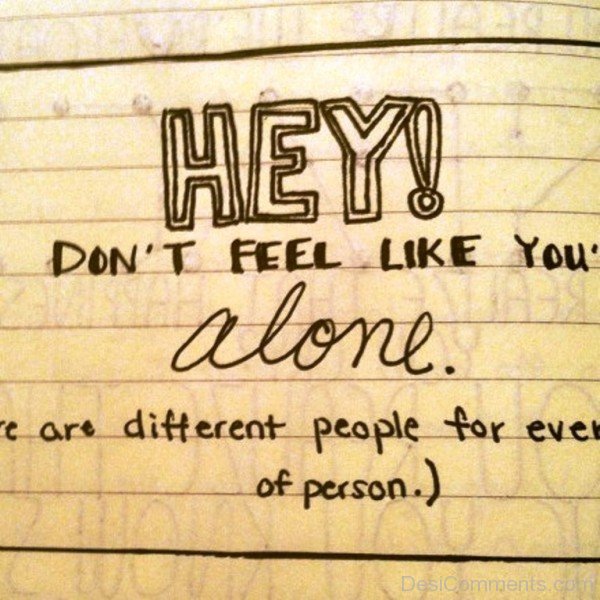 HEY!
DON'T FEEL LIKE YOU'
alone.
re are different people for ever
of person.)
DesiComments.com